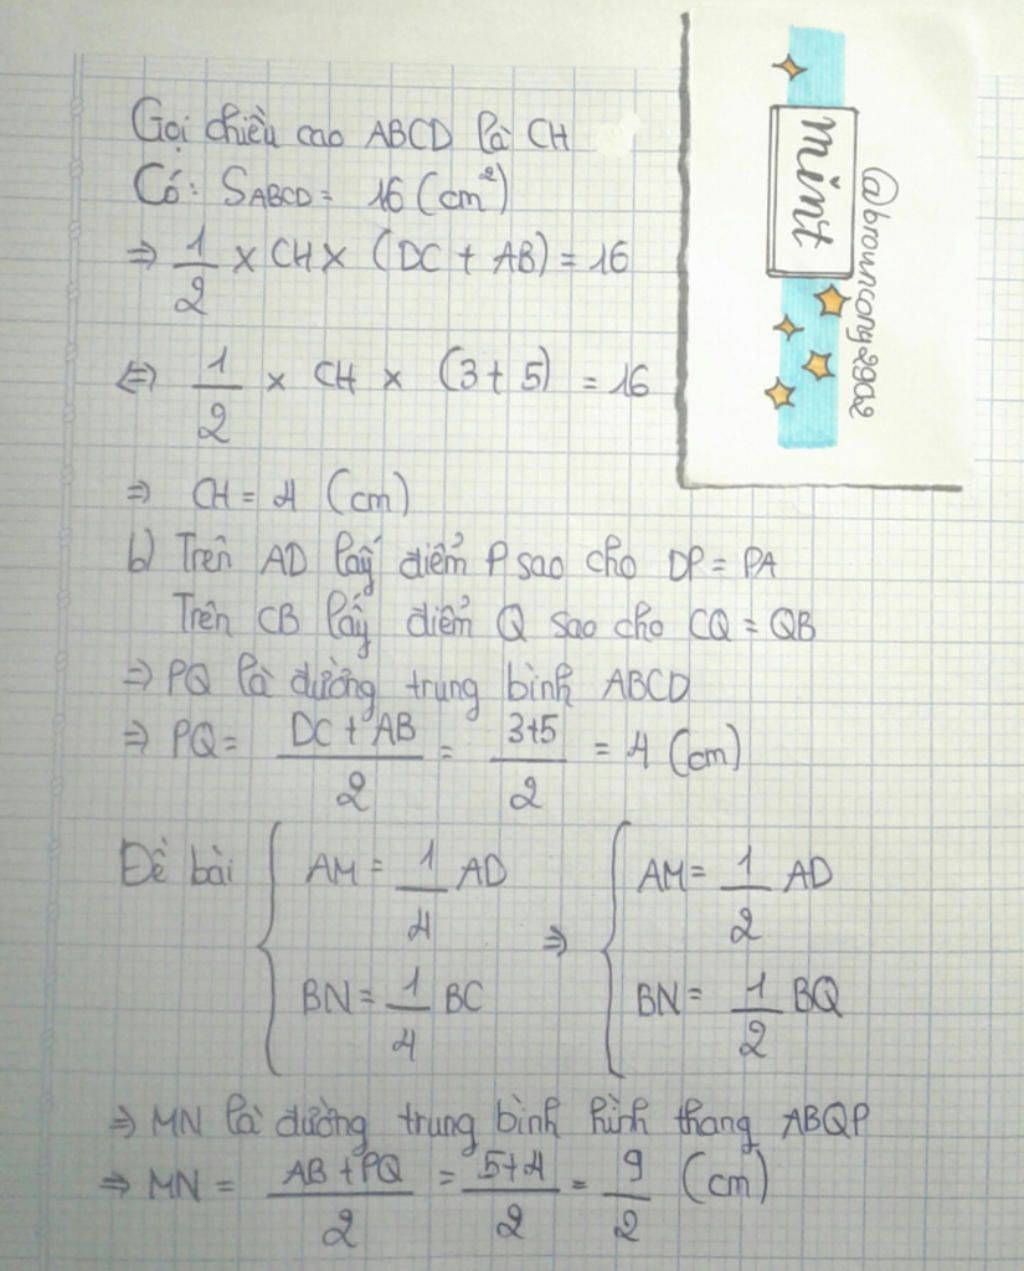 Gọi chiều cao ABCD là CH
Có: SABCD = 16 (cm²)
⇒ 1/2 × CH × (DC + AB) = 16
⇔ 1/2 × CH × (3+5) = 16
⇒ CH = 4 (cm)
b) Trên AD lấy điểm P sao cho DP = PA
Trên CB lấy điểm Q sao cho CQ = QB
⇒ PQ là đường trung bình ABCD
⇒ PQ = (DC + AB)/2 = (3+5)/2 = 4 (cm)
Đề bài { AM = 1/4 AD ⇒ { AM = 1/2 AD
BN = 1/4 BC BN = 1/2 BQ
⇒ MN là đường trung bình hình thang ABQP
⇒ MN = (AB + PQ)/2 = (5+4)/2 = 9/2 (cm)
mint
@brouncony2902